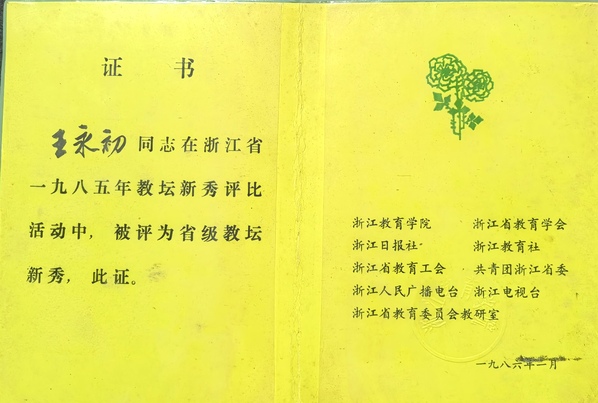 证 书
王永初 同志在浙江省
一九八五年教坛新秀评比
活动中，被评为省级教坛
新秀，此证。
浙江教育学院 浙江省教育学会
浙江日报社 浙江教育社
浙江省教育工会 共青团浙江省委
浙江人民广播电台 浙江电视台
浙江省教育委员会教研室
一九八六年一月